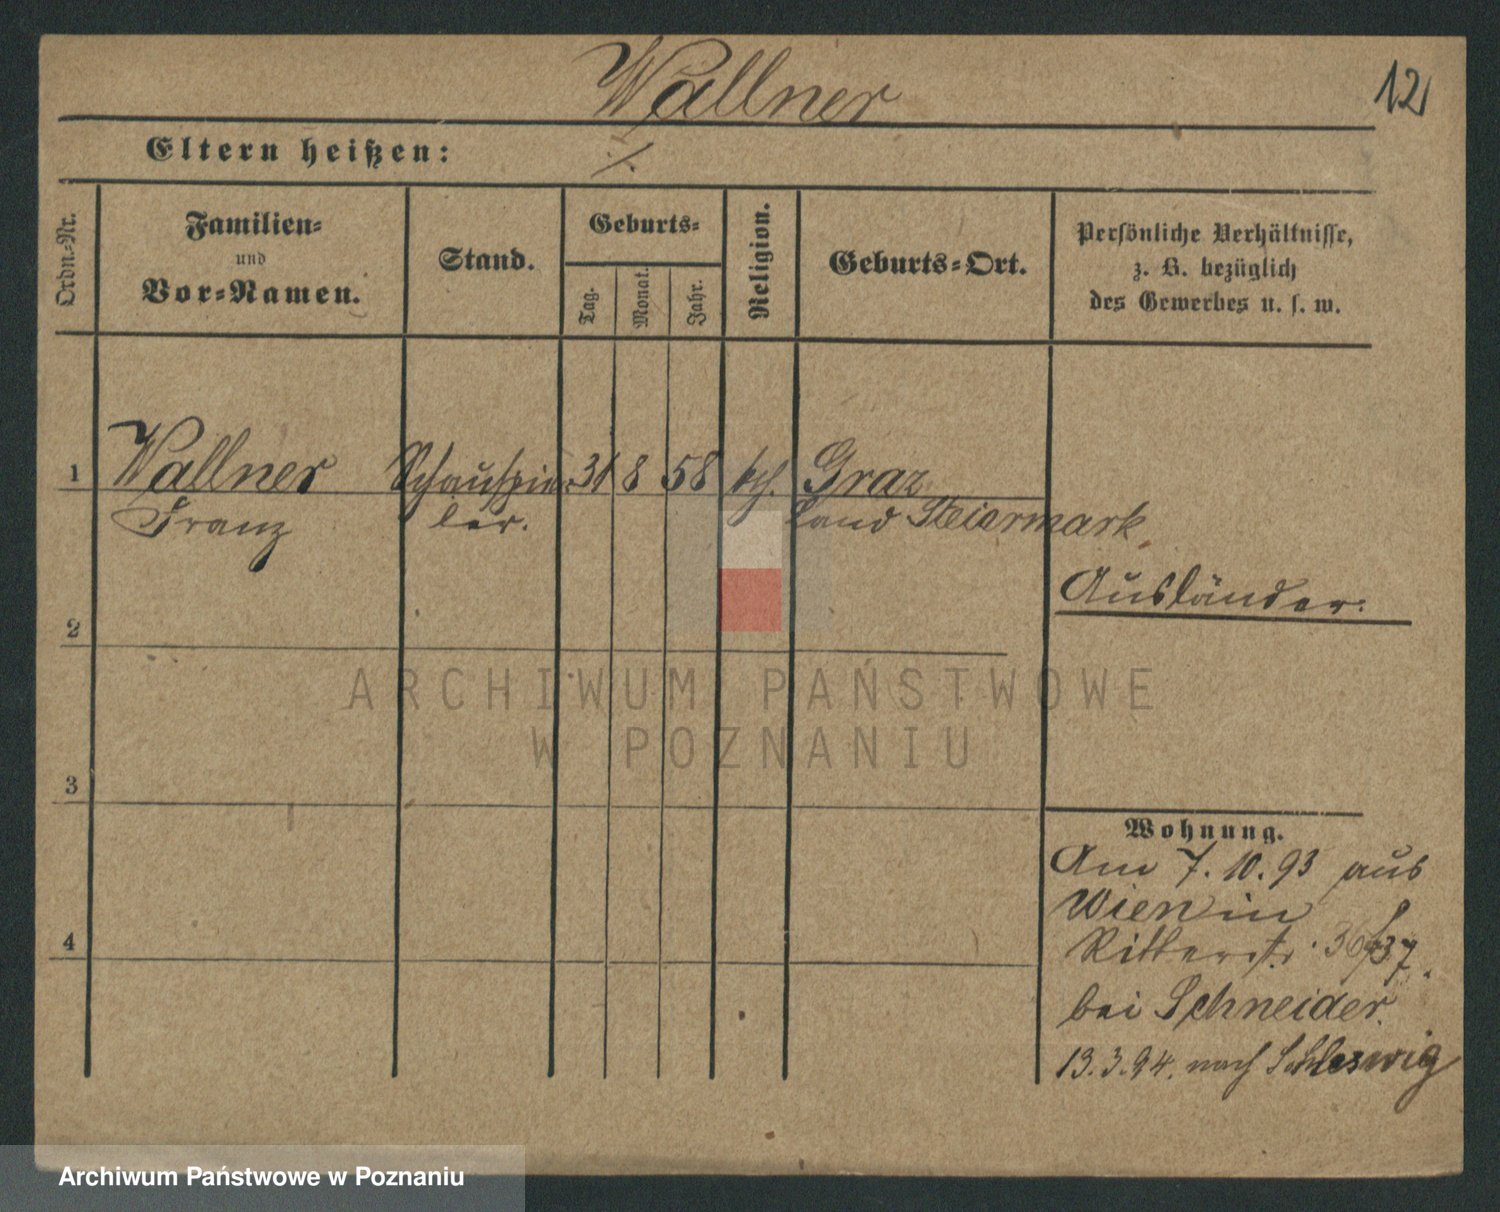 Wallner
12
Eltern heißen: ./.
Ordn.-Nr.
Familien-
und
Vor-Namen.
Stand.
Geburts-
Tag.
Monat.
Jahr.
Religion.
Geburts-Ort.
Persönliche Verhältnisse,
z. B. bezüglich
des Gewerbes u. s. w.
1 Wallner Schauspie- 31 8 58 kth. Graz
Franz ler. Land Steiermark
Ausländer.
2
3
4
Wohnung.
Am 7. 10. 93 aus
Wien in
Ritterstr. 36/37.
bei Schneider.
13.3.94. nach Schleswig
ARCHIWUM PAŃSTWOWE
W POZNANIU
Archiwum Państwowe w Poznaniu